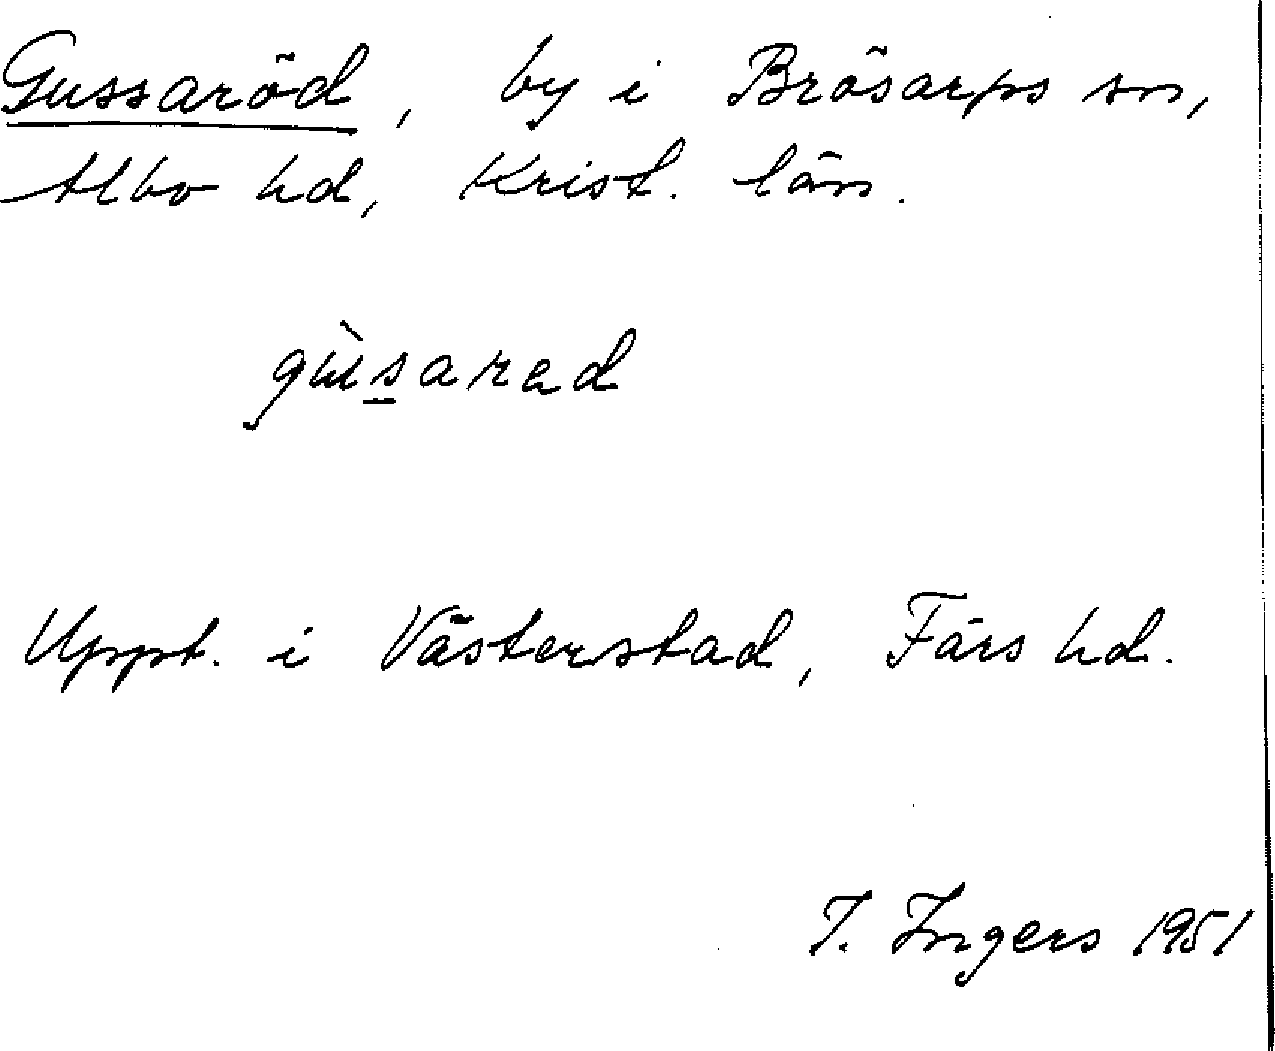 Gussaröd, by i Brösarps sn,
Albo hd, Krist. län.
gùsarad
Uppt. i Västerstad, Färs hd.
I. Ingers 1951